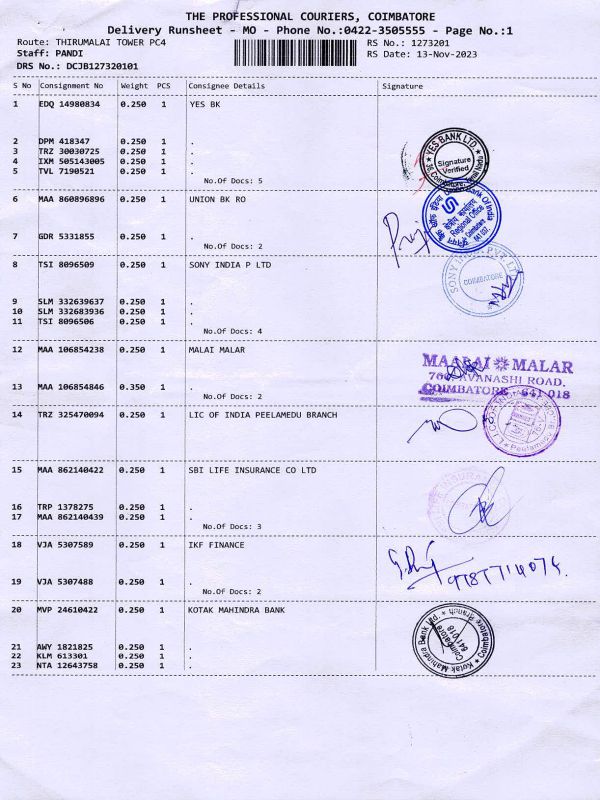 THE PROFESSIONAL COURIERS, COIMBATORE
Delivery Runsheet - MO - Phone No.:0422-3505555 - Page No.:1
Route: THIRUMALAI TOWER PC4 RS No.: 1273201
Staff: PANDI RS Date: 13-Nov-2023
DRS No.: DCJB127320101
S No Consignment No Weight PCS Consignee Details Signature
1 EDQ 14980834 0.250 1 YES BK
2 DPM 418347 0.250 1 .
3 TRZ 30030725 0.250 1 .
4 IXM 505143005 0.250 1 .
5 TVL 7190521 0.250 1 .
No.Of Docs: 5
YES BANK LTD.
Signature
Verified
6 MAA 860896896 0.250 1 UNION BK RO
7 GDR 5331855 0.250 1 .
No.Of Docs: 2
Regional Office
8 TSI 8096509 0.250 1 SONY INDIA P LTD
9 SLM 332639637 0.250 1 .
10 SLM 332683936 0.250 1 .
11 TSI 8096506 0.250 1 .
No.Of Docs: 4
COIMBATORE
12 MAA 106854238 0.250 1 MALAI MALAR
13 MAA 106854846 0.350 1 .
No.Of Docs: 2
MAALAI MALAR
AVANASHI ROAD.
COIMBATORE - 641-018
14 TRZ 325470094 0.250 1 LIC OF INDIA PEELAMEDU BRANCH
15 MAA 862140422 0.250 1 SBI LIFE INSURANCE CO LTD
16 TRP 1378275 0.250 1 .
17 MAA 862140439 0.250 1 .
No.Of Docs: 3
18 VJA 5307589 0.250 1 IKF FINANCE
19 VJA 5307488 0.250 1 .
No.Of Docs: 2
20 MVP 24610422 0.250 1 KOTAK MAHINDRA BANK
21 AWY 1821825 0.250 1 .
22 KLM 613301 0.250 1 .
23 NTA 12643758 0.250 1 .
Kotak Mahindra Bank Ltd.
Coimbatore Branch
Coimbatore
641018